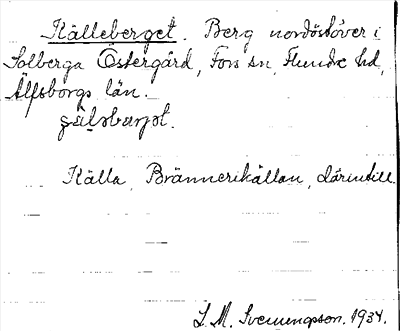 Källeberget. Berg nordöstöver i
Solberga Östergård, Fors sn, Flundre hd,
Älfsborgs län.
Källa, Brännerikällan, därintill.
L. M. Svenungson. 1934.